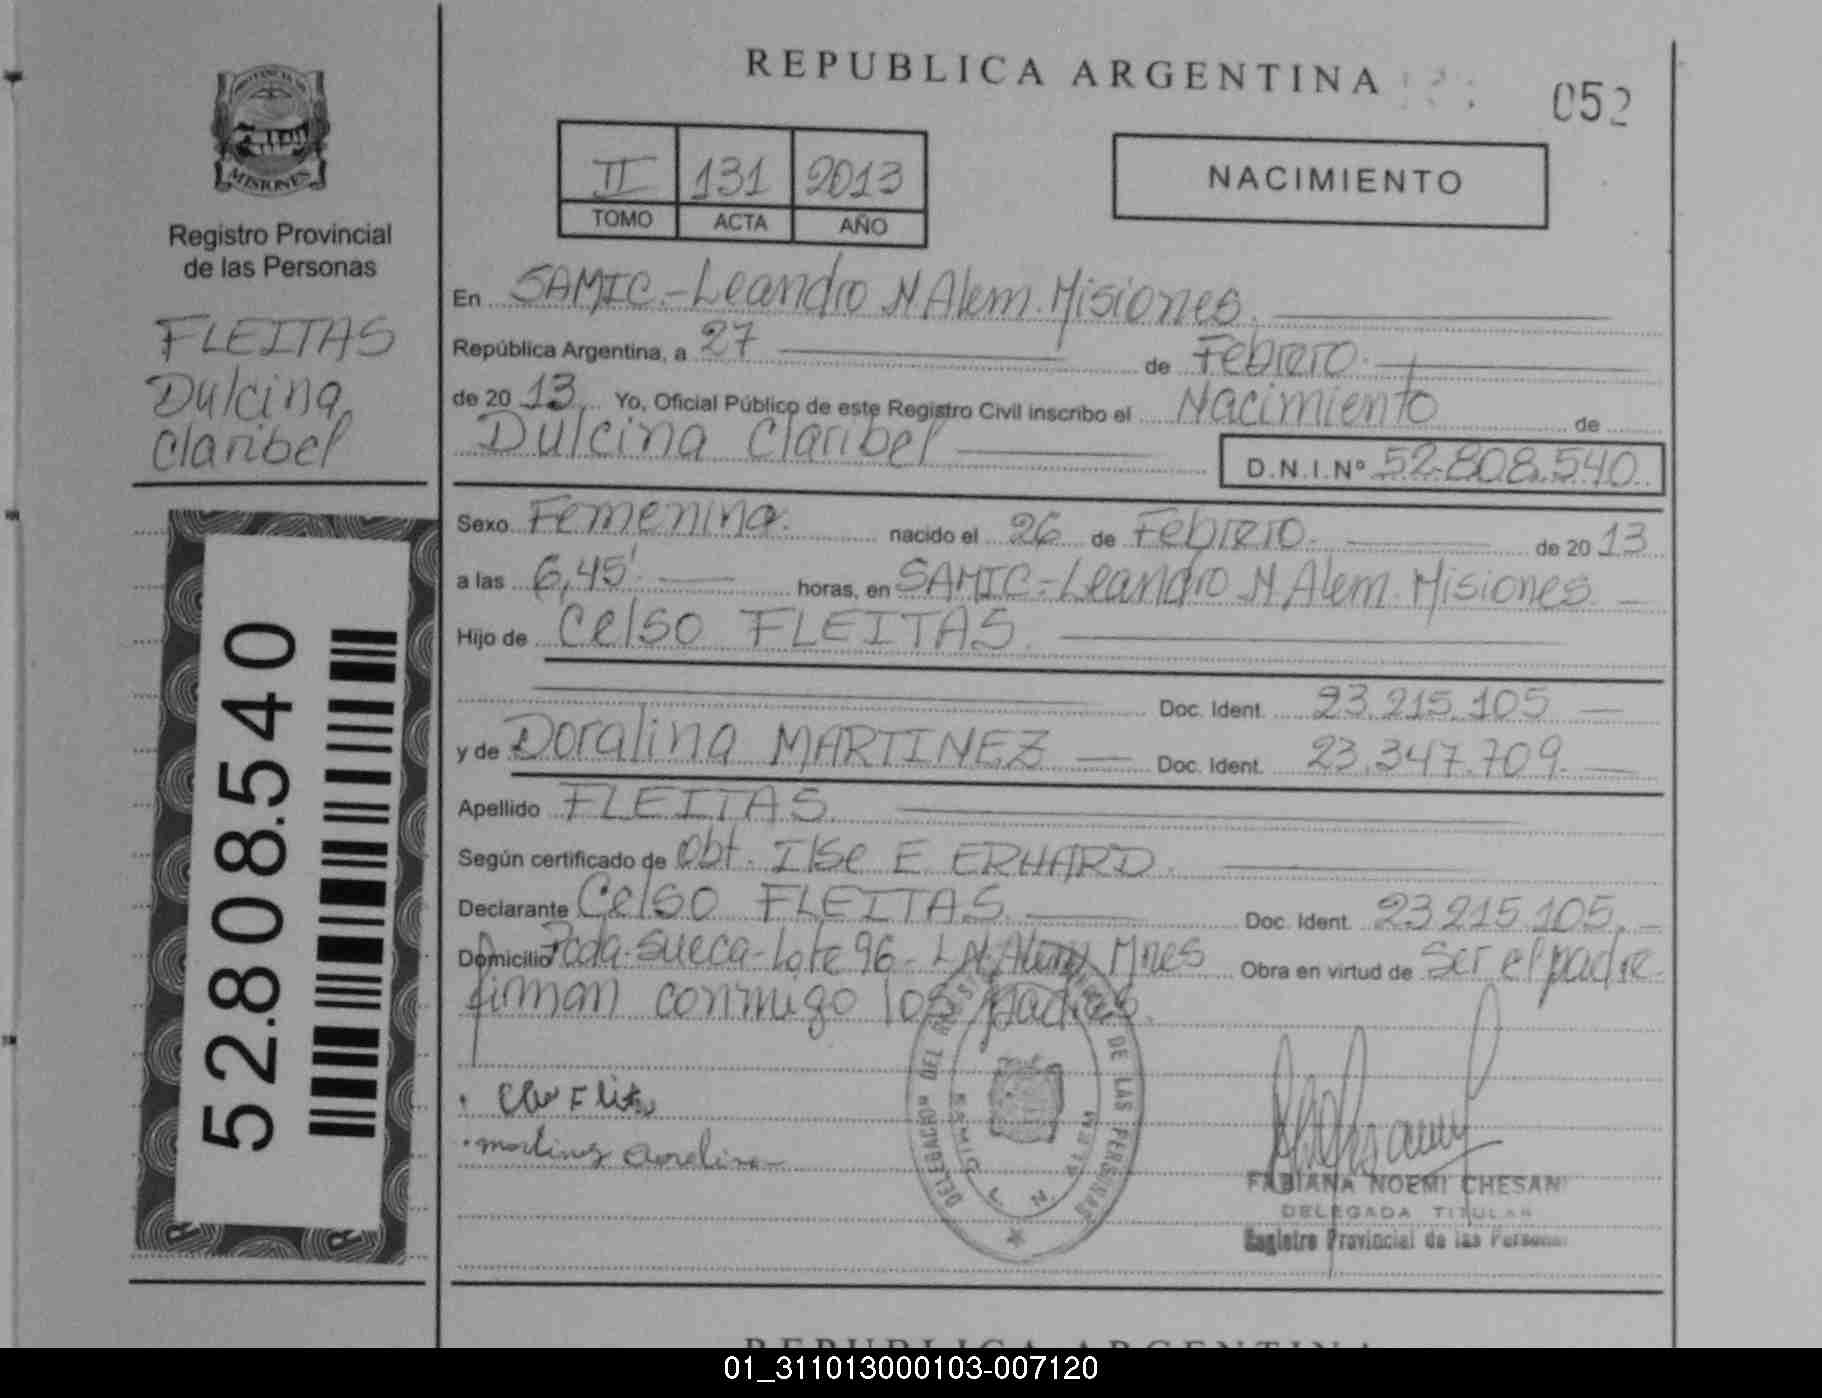 REPUBLICA ARGENTINA
052
PROVINCIA DE
MISIONES
Registro Provincial
de las Personas
FLEITAS
Dulcina
Claribel
52.808.540
II 131 2013
TOMO ACTA AÑO
NACIMIENTO
En SAMIC.-Leandro N Alem. Misiones.
República Argentina, a 27 de Febrero.
de 20 13 Yo, Oficial Público de este Registro Civil inscribo el Nacimiento de
Dulcina Claribel D.N.I.Nº 52.808.540.
Sexo Femenina. nacido el 26 de Febrero. de 20 13
a las 6,45'. horas, en SAMIC.-Leandro N Alem. Misiones.
Hijo de Celso FLEITAS.
Doc. Ident. 23.215.105
y de Doralina MARTINEZ Doc. Ident. 23.347.709.
Apellido FLEITAS.
Según certificado de Obt. Ilse E. ERHARD.
Declarante Celso FLEITAS. Doc. Ident. 23.215.105.
Domicilio Pcda. Sueca-Lote 96-L.N.Alem Mnes Obra en virtud de Ser el padre.
firman conmigo los padres.
DELEGACION DEL REGISTRO DE LAS PERSONAS
SAMIC L. N. ALEM
FABIANA NOEMI CHESANI
DELEGADA TITULAR
Registro Provincial de las Personas
REPUBLICA ARGENTINA
01_311013000103-007120